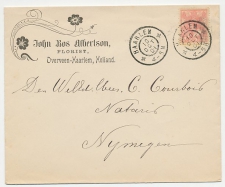 John Bos Albertson,
FLORIST,
Overveen-Haarlem, Holland.
HAARLEM
HAARLEM
Den WelEd. Heer C. Courbois
Notaris
Nymegen